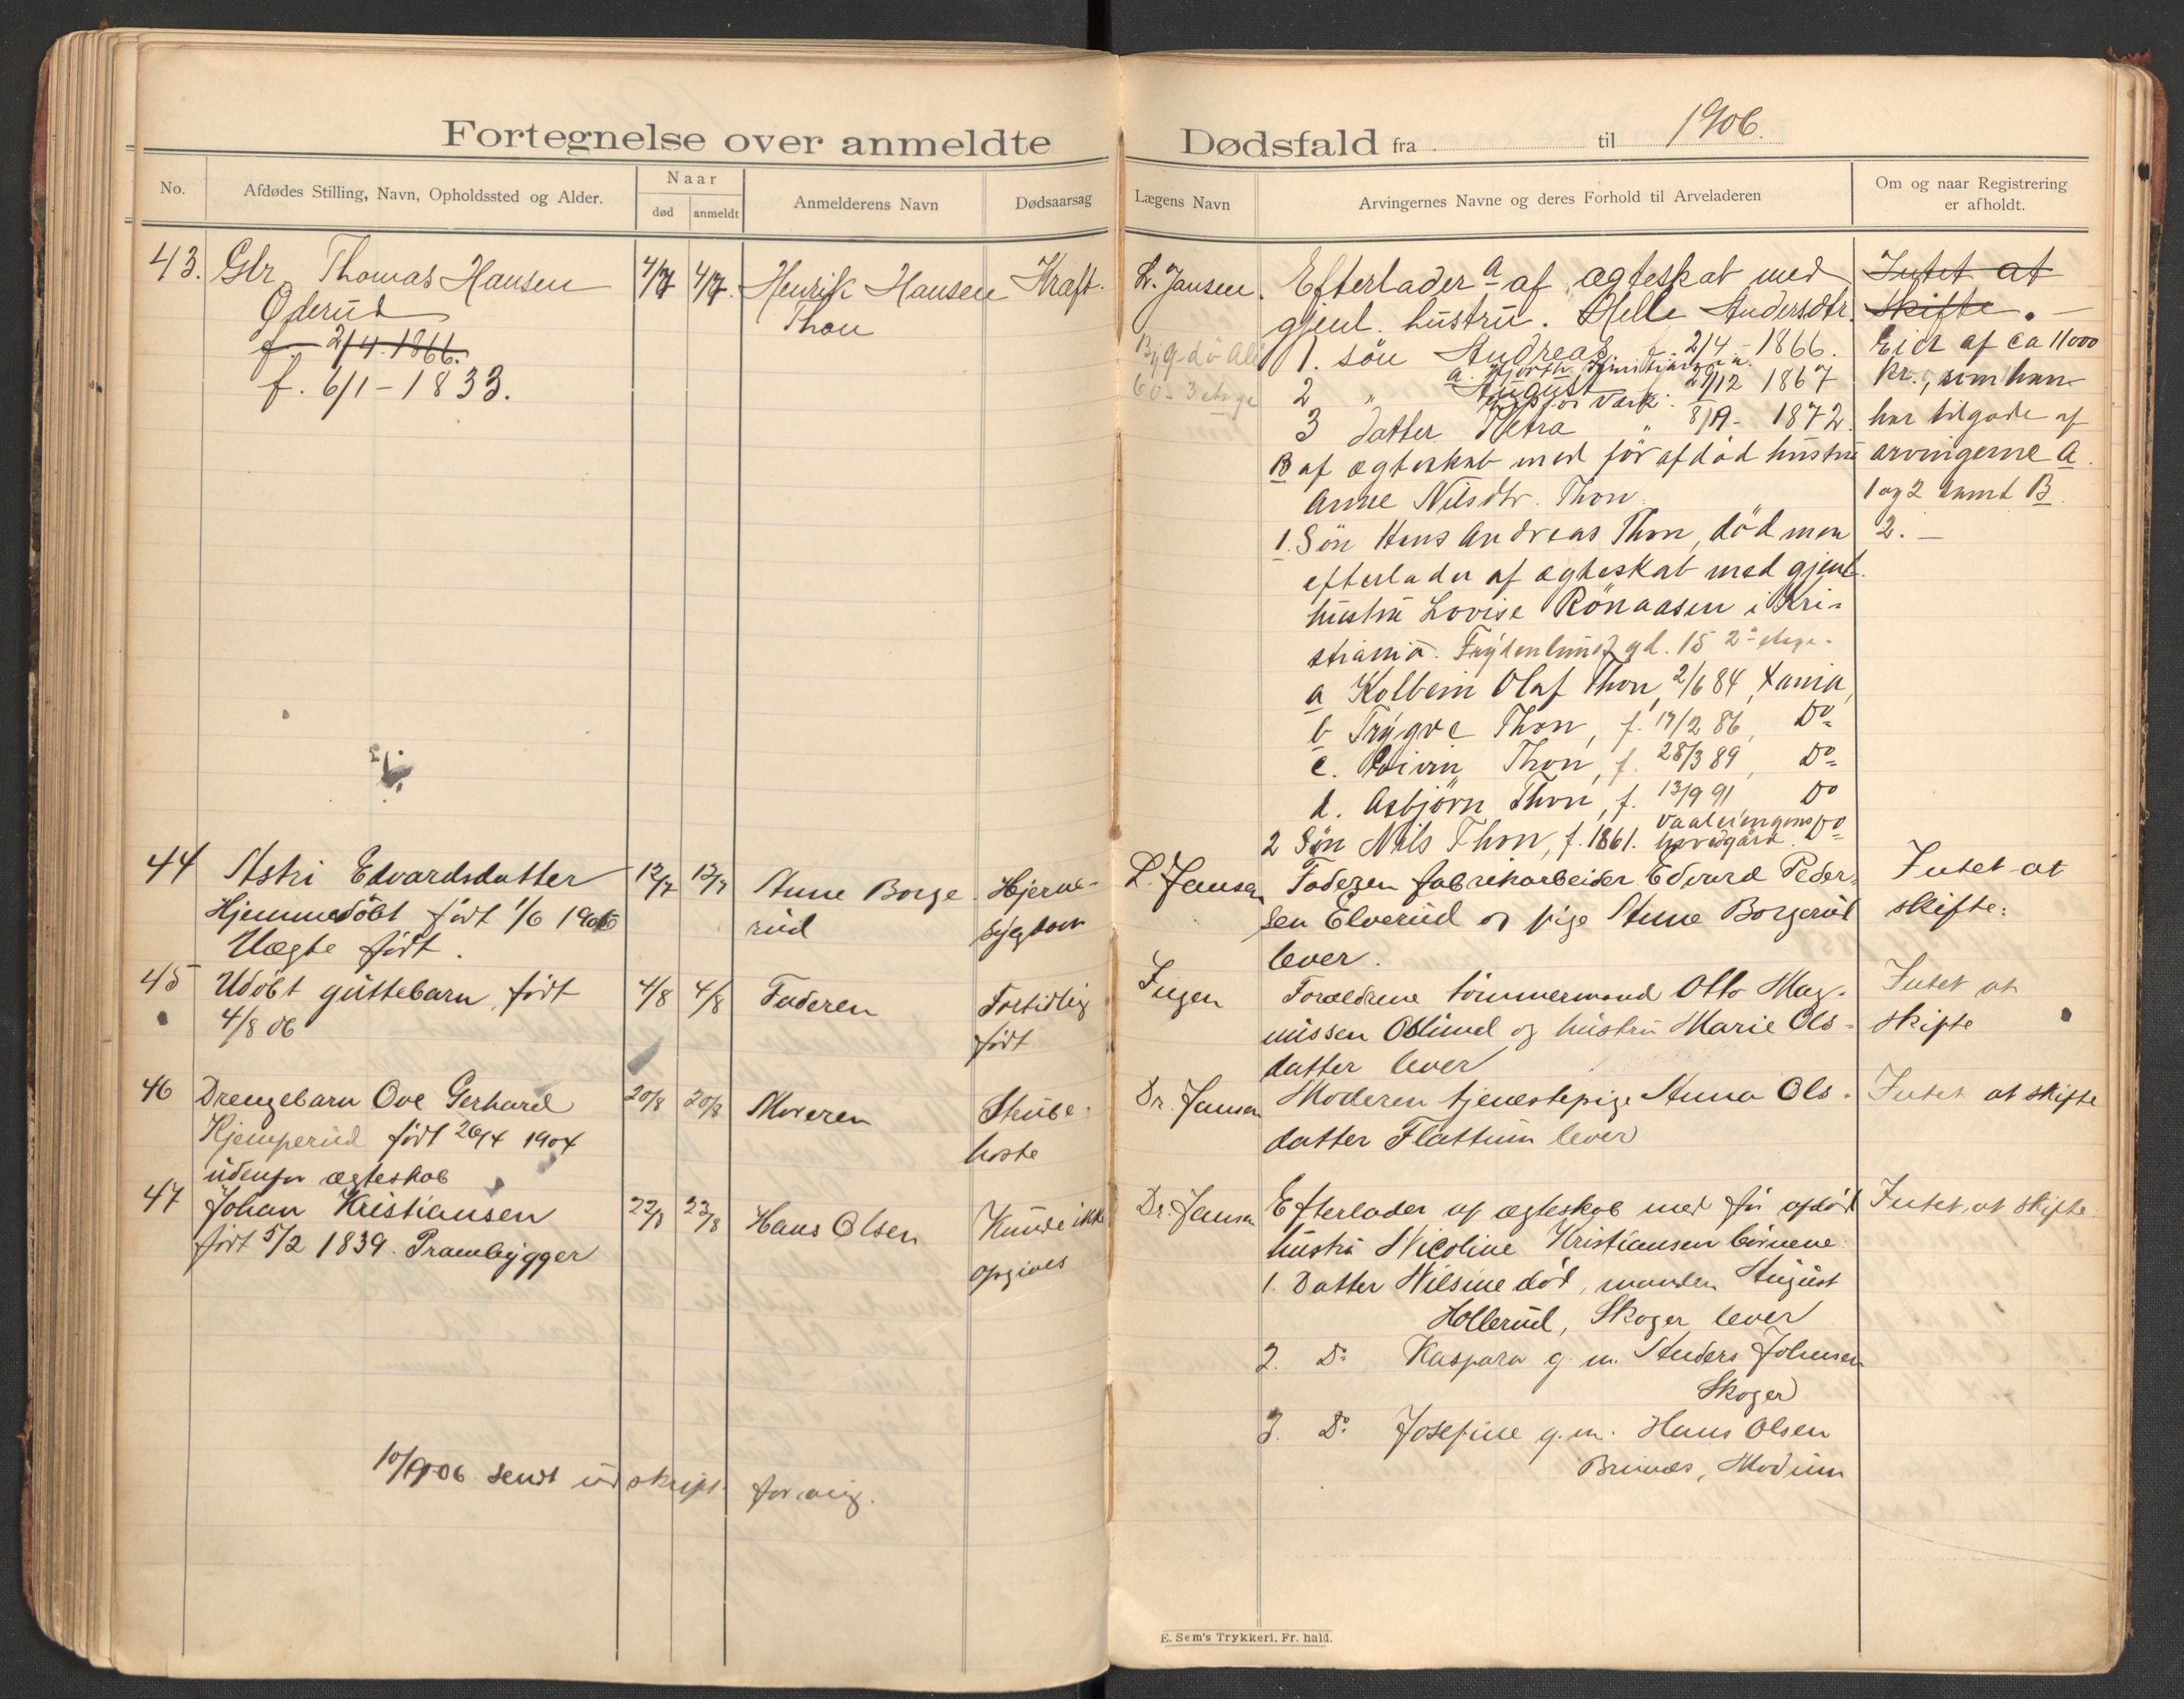 Fortegnelse over anmeldte Dødsfald fra til 1906.
No.
Afdødes Stilling, Navn, Opholdssted og Alder.
Naar
død
anmeldt
Anmelderens Navn
Dødsaarsag
Lægens Navn
Arvingernes Navne og deres Forhold til Arveladeren
Om og naar Registrering
er afholdt.
43. Gbr. Thomas Hansen
Øderud
f. 2/4. 1866.
f. 6/1 - 1833.
4/7
4/7.
Henrik Hansen
Thon
Kræft.
Dr. Jansen.
Efterlader a af ægteskab med
gjenl. hustru. Helle Andersdtr.
1. søn Andreas f. 2/4 - 1866.
2 " August 27/12 1867
3 datter Petra " 8/9 - 1872.
B af ægteskab med før afdød hustru
Anne Nilsdtr. Thon.
1. Søn Hans Andreas Thon, død men
efterlader af ægteskab med gjenl.
hustru Lovise Rönaasen i Kri-
stiania. Frydenlundsgd. 15 2 etage.
a Kolbein Olaf Thon, 2/6 84, Xania,
b Trygve Thon, f. 17/2 86, Do
c. Eivin Thon, f. 28/3 89, Do
d. Asbjørn Thon, f. 13/9 91 Do
2 Søn Nils Thon, f. 1861. Vaalerengens hovedgård. Do
Intet at
skifte. -
Eier af ca 11000
kr., som han
har tilgode af
arvingerne A.
1 og 2 samt B.
2. -
44 Astri Edvardsdatter
Hjemmedöbt født 1/6 1906
Uægte født.
12/7
12/7
Anne Borge-
rud
Hjerne-
sygdom
D. Jansen
Faderen fabrikarbeider Edvard Peder-
sen Elverud og pige Anne Borgerud
lever.
Intet at
skifte.
45 Udöbt guttebarn, født
4/8 06
4/8
4/8
Faderen
Fortidlig
født
Ingen
Forældrene tømmermand Otto Mag-
nussen Oslund og hustru Marie Ols-
datter lever
Intet at
skifte
46 Drengebarn Ove Gerhard
Kjemperud født 26/4 1904
udenfor ægteskab
20/8
20/8
Moderen
Strube-
hoste
Dr. Jansen
Moderen tjenestepige Anna Ols-
datter Flattum lever
Intet at skifte
47 Johan Kristiansen
født 5/2 1839. Prambygger
22/8
23/8
Hans Olsen
Kunde ikke
opgives
Dr. Jansen
Efterlader af ægteskab med før afdød
hustru Nicoline Kristiansen börnene:
1. Datter Nilsine död, manden August
Hollerud, Skoger lever
2. Do Kaspara g. m. Anders Johnsen
Skoger
3. Do Josefine g. m. Hans Olsen
Brunæs, Modum
10/9 06 sendt udskrift for mig.
E. Sem's Trykkeri, Fr. hald.